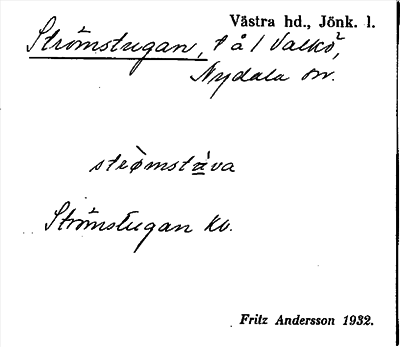 Västra hd., Jönk. l.
Strömstugan, t å l Valkö²,
Nydala sn.
strömstùva
Strömstugan kv.
Fritz Andersson 1932.